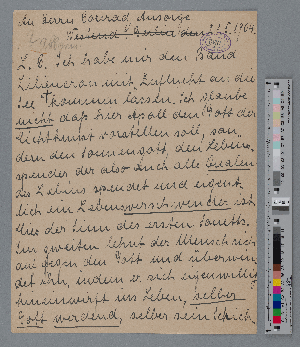 An Herrn Conrad Ansorge
Westend-Berlin den 21.5.1904.
L. C. Ich habe mir den Band
Liliencron mit Zuflucht an die
See kommen lassen. Ich glaube
nicht daß hier Apoll den Gott der
Lichtkunst vorstellen soll, son-
dern den Sonnengott den Lebens-
spender der also auch alle Qualen
des Lebens spendet und eigent-
lich ein Lebensverschwender ist.
Das der Sinn des ersten Sonetts.
Im zweiten lehnt der Mensch sich
auf gegen den Gott und überwin-
det ihn, indem er sich eigenwillig
hineinwirft ins Leben, selber
Gott werdend, selber sein Schick-